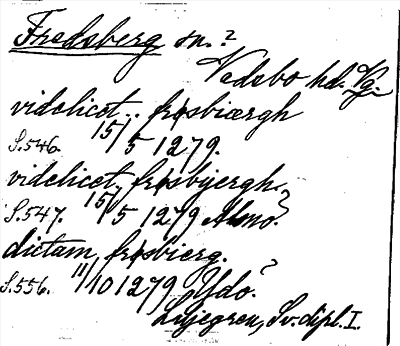 Fredsberg sn.?
Vadsbo hd. Vg.
videlicet.. frøsbiærgh
S.546. 15/5 1279.
videlicet, frøsbyergh.
S.547. 15/5 1279
dictam, frøsbierg.
S.556. 11/10 1279, Ydö.?
Liljegren, Sv. dipl. I.